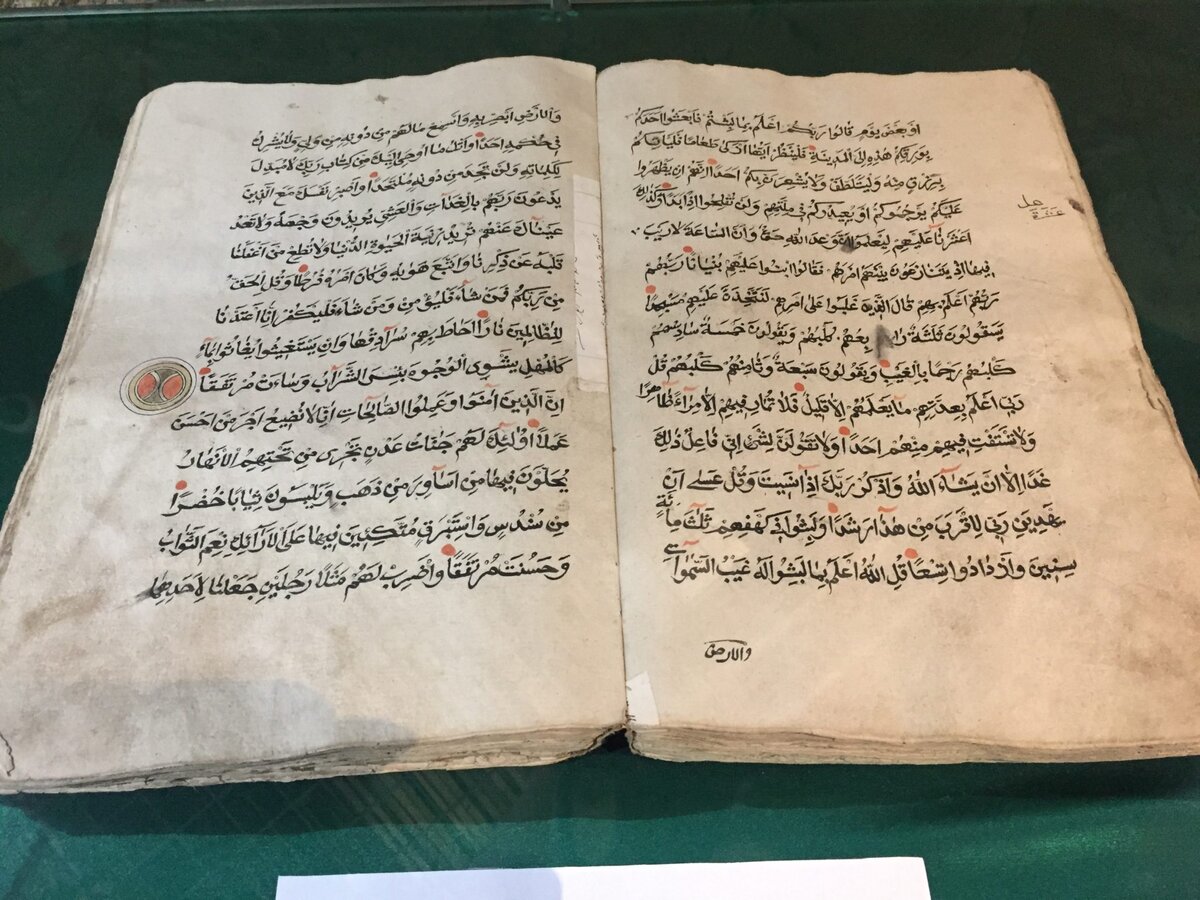 اَوْ بَعْضَ يَوْمٍ قَالُوا رَبُّكُمْ اَعْلَمُ بِمَا لَبِثْتُمْ فَابْعَثُوا اَحَدَكُمْ
بِوَرِقِكُمْ هٰذِهِ اِلَى الْمَدِينَةِ فَلْيَنْظُرْ اَيُّهَا اَزْكٰى طَعَامًا فَلْيَاْتِكُمْ
بِرِزْقٍ مِنْهُ وَلْيَتَلَطَّفْ وَلَا يُشْعِرَنَّ بِكُمْ اَحَدًا اِنَّهُمْ اِنْ يَظْهَرُوا
عَلَيْكُمْ يَرْجُمُوكُمْ اَوْ يُعِيدُوكُمْ فِي مِلَّتِهِمْ وَلَنْ تُفْلِحُوا اِذًا اَبَدًا وَكَذٰلِكَ
اَعْثَرْنَا عَلَيْهِمْ لِيَعْلَمُوا اَنَّ وَعْدَ اللّٰهِ حَقٌّ وَاَنَّ السَّاعَةَ لَا رَيْبَ
فِيهَا اِذْ يَتَنَازَعُونَ بَيْنَهُمْ اَمْرَهُمْ فَقَالُوا ابْنُوا عَلَيْهِمْ بُنْيَانًا رَبُّهُمْ
رَبُّهُمْ اَعْلَمُ بِهِمْ قَالَ الَّذِينَ غَلَبُوا عَلٰى اَمْرِهِمْ لَنَتَّخِذَنَّ عَلَيْهِمْ مَسْجِدًا
سَيَقُولُونَ ثَلٰثَةٌ رَابِعُهُمْ كَلْبُهُمْ وَيَقُولُونَ خَمْسَةٌ سَادِسُهُمْ
كَلْبُهُمْ رَجْمًا بِالْغَيْبِ وَيَقُولُونَ سَبْعَةٌ وَثَامِنُهُمْ كَلْبُهُمْ قُلْ
رَبِّي اَعْلَمُ بِعِدَّتِهِمْ مَا يَعْلَمُهُمْ اِلَّا قَلِيلٌ فَلَا تُمَارِ فِيهِمْ اِلَّا مِرَاءً ظَاهِرًا
وَلَا تَسْتَفْتِ فِيهِمْ مِنْهُمْ اَحَدًا وَلَا تَقُولَنَّ لِشَيْءٍ اِنِّي فَاعِلٌ ذٰلِكَ
غَدًا اِلَّا اَنْ يَشَاءَ اللّٰهُ وَاذْكُرْ رَبَّكَ اِذَا نَسِيتَ وَقُلْ عَسٰى اَنْ
يَهْدِيَنِ رَبِّي لِاَقْرَبَ مِنْ هٰذَا رَشَدًا وَلَبِثُوا فِي كَهْفِهِمْ ثَلٰثَ مِائَةٍ
سِنِينَ وَازْدَادُوا تِسْعًا قُلِ اللّٰهُ اَعْلَمُ بِمَا لَبِثُوا لَهُ غَيْبُ السَّمٰوَاتِ
والارض
وَالْاَرْضِ اَبْصِرْ بِهِ وَاَسْمِعْ مَا لَهُمْ مِنْ دُونِهِ مِنْ وَلِيٍّ وَلَا يُشْرِكُ
فِي حُكْمِهِ اَحَدًا وَاتْلُ مَا اُوحِيَ اِلَيْكَ مِنْ كِتَابِ رَبِّكَ لَا مُبَدِّلَ
لِكَلِمَاتِهِ وَلَنْ تَجِدَ مِنْ دُونِهِ مُلْتَحَدًا وَاصْبِرْ نَفْسَكَ مَعَ الَّذِينَ
يَدْعُونَ رَبَّهُمْ بِالْغَدَاتِ وَالْعَشِيِّ يُرِيدُونَ وَجْهَهُ وَلَا تَعْدُ
عَيْنَاكَ عَنْهُمْ تُرِيدُ زِينَةَ الْحَيٰوةِ الدُّنْيَا وَلَا تُطِعْ مَنْ اَغْفَلْنَا
قَلْبَهُ عَنْ ذِكْرِنَا وَاتَّبَعَ هَوٰيهُ وَكَانَ اَمْرُهُ فُرُطًا وَقُلِ الْحَقُّ
مِنْ رَبِّكُمْ فَمَنْ شَاءَ فَلْيُؤْمِنْ وَمَنْ شَاءَ فَلْيَكْفُرْ اِنَّا اَعْتَدْنَا
لِلظَّالِمِينَ نَارًا اَحَاطَ بِهِمْ سُرَادِقُهَا وَاِنْ يَسْتَغِيثُوا يُغَاثُوا بِمَاءٍ
كَالْمُهْلِ يَشْوِي الْوُجُوهَ بِئْسَ الشَّرَابُ وَسَاءَتْ مُرْتَفَقًا
اِنَّ الَّذِينَ اٰمَنُوا وَعَمِلُوا الصَّالِحَاتِ اِنَّا لَا نُضِيعُ اَجْرَ مَنْ اَحْسَنَ
عَمَلًا اُولٰئِكَ لَهُمْ جَنَّاتُ عَدْنٍ تَجْرِي مِنْ تَحْتِهِمُ الْاَنْهَارُ
يُحَلَّوْنَ فِيهَا مِنْ اَسَاوِرَ مِنْ ذَهَبٍ وَيَلْبَسُونَ ثِيَابًا خُضْرًا
مِنْ سُنْدُسٍ وَاِسْتَبْرَقٍ مُتَّكِئِينَ فِيهَا عَلَى الْاَرَائِكِ نِعْمَ الثَّوَابُ
وَحَسُنَتْ مُرْتَفَقًا وَاضْرِبْ لَهُمْ مَثَلًا رَجُلَيْنِ جَعَلْنَا لِاَحَدِهِمَا